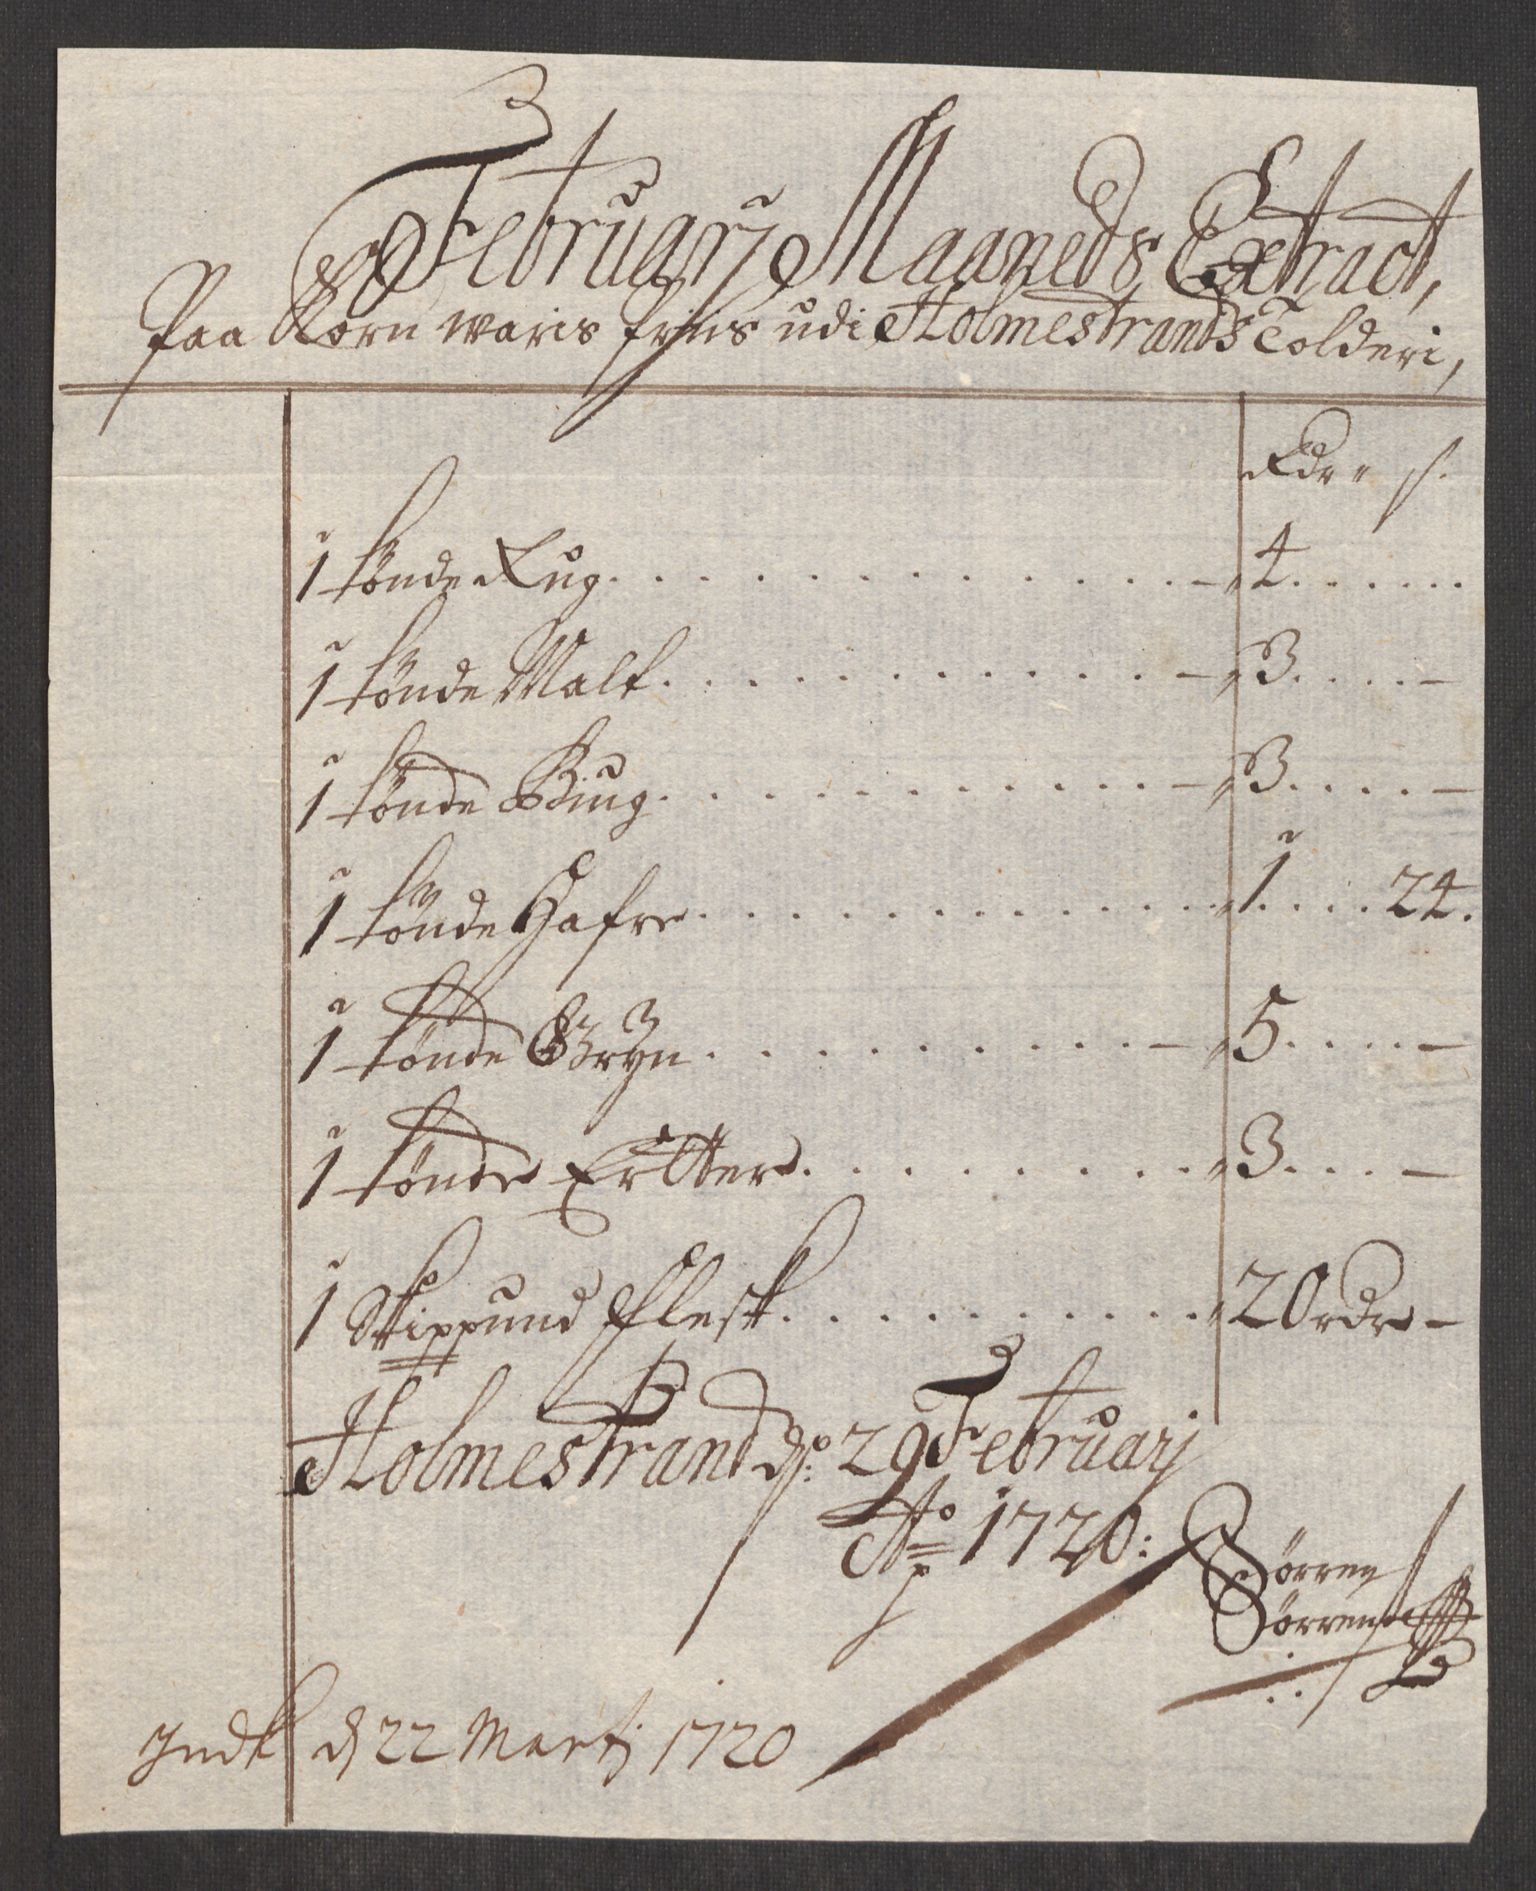 Februarij Maaneds Extract,
Paa Korn waris priis udi Holmestrands Tolderi,
Rdr s.
1 tønde Rug . . . . . . . . . . . . . — 4 . . . . . .
1 tønde Malt . . . . . . . . . . . — 3 . . . . —
1 tønde Biug . . . . . . . . . . . — 3 . . . . —
1 tønde Hafre . . . . . . . . . . . . 1 . . . . 24.
1 tønde Gryn . . . . . . . . . . — 5 . . . . —
1 tønde Ertter . . . . . . . . . 3 . . . —
1 Skippund Flesk . . . . . . . . . . 20 rdr —
Holmestrand d: 29 Februarij
Ao 1720:
Sørren
Sørrens
Indk d 22 Martj 1720